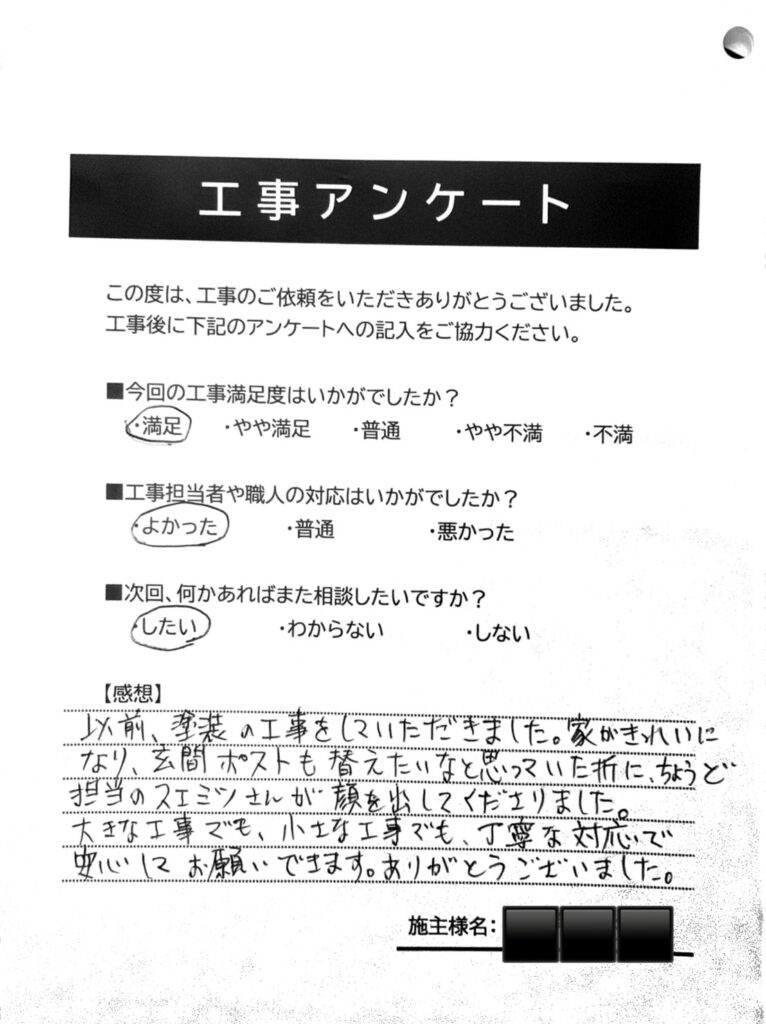 工事アンケート
この度は、工事のご依頼をいただきありがとうございました。
工事後に下記のアンケートへの記入をご協力ください。
■今回の工事満足度はいかがでしたか？
・満足 ・やや満足 ・普通 ・やや不満 ・不満
■工事担当者や職人の対応はいかがでしたか？
・よかった ・普通 ・悪かった
■次回、何かあればまた相談したいですか？
・したい ・わからない ・しない
【感想】
以前、塗装の工事をしていただきました。家がきれいに
なり、玄関ポストも替えたいなと思っていた折に、ちょうど
担当のスエミツさんが顔を出してくださりました。
大きな工事でも、小さな工事でも、丁寧な対応いで
安心してお願いできます。ありがとうございました。
施主様名：